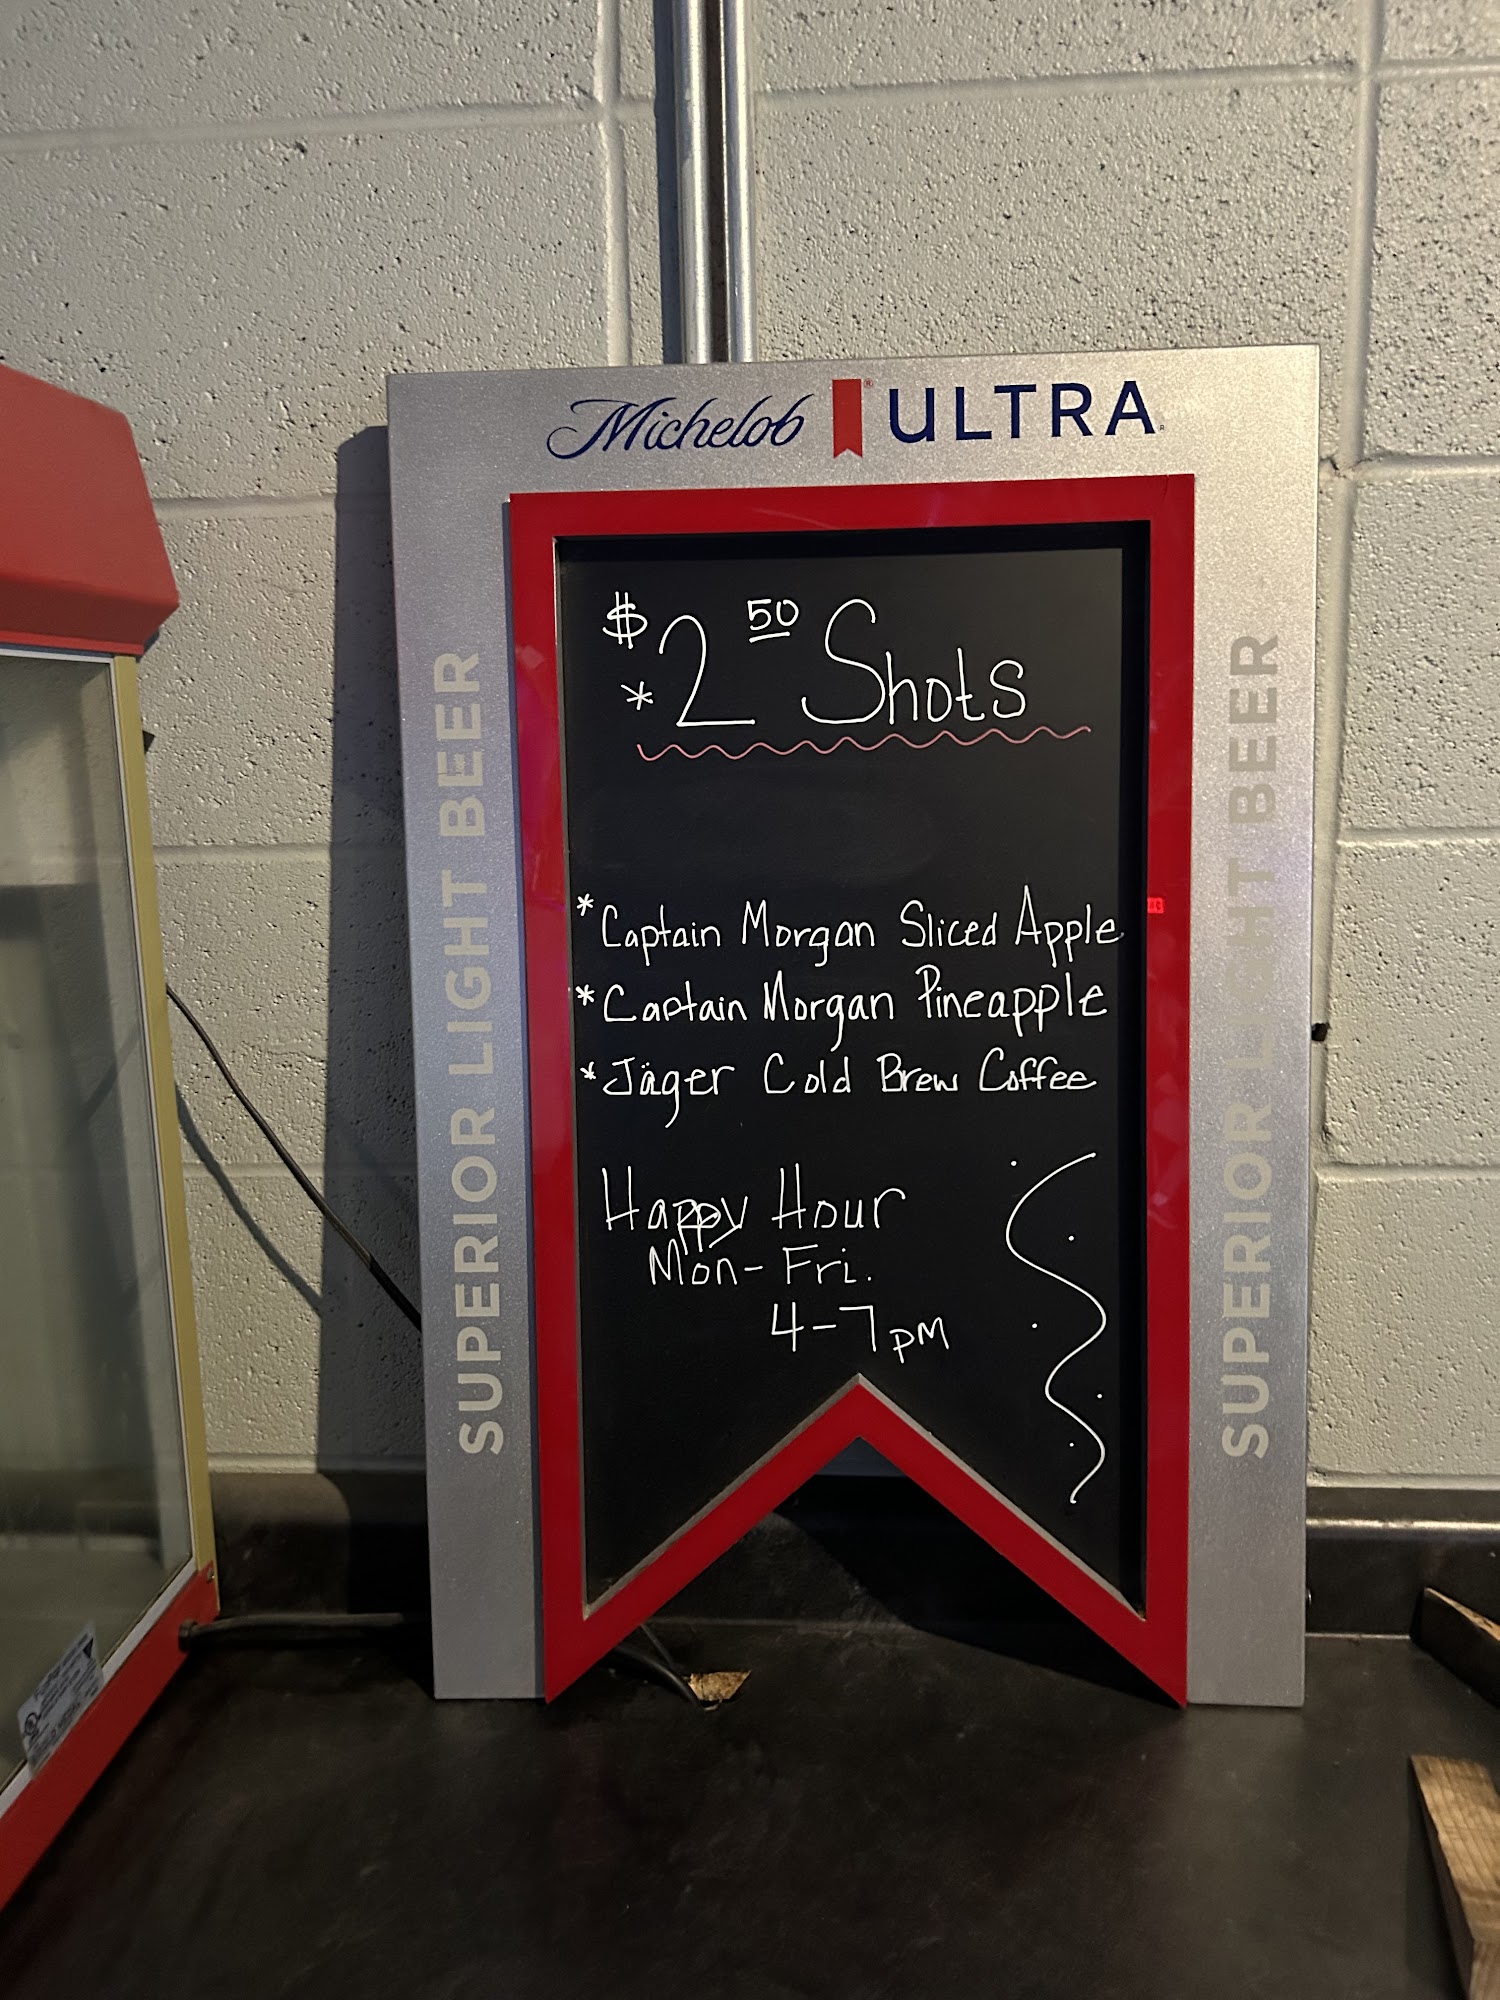 Michelob ULTRA
SUPERIOR LIGHT BEER
$2 50 Shots
*
*Captain Morgan Sliced Apple
*Captain Morgan Pineapple
*Jäger Cold Brew Coffee
Happy Hour
Mon-Fri.
4-7pm
SUPERIOR LIGHT BEER